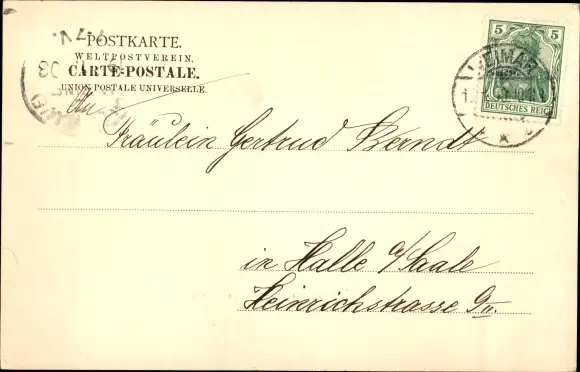 POSTKARTE.
WELTPOSTVEREIN.
CARTE-POSTALE.
UNION POSTALE UNIVERSELLE.
5 5
DEUTSCHES REICH
WEIMAR
An
Fräulein Gertrud Berndt
in Halle a/Saale
Heinrichstrasse 9 II.